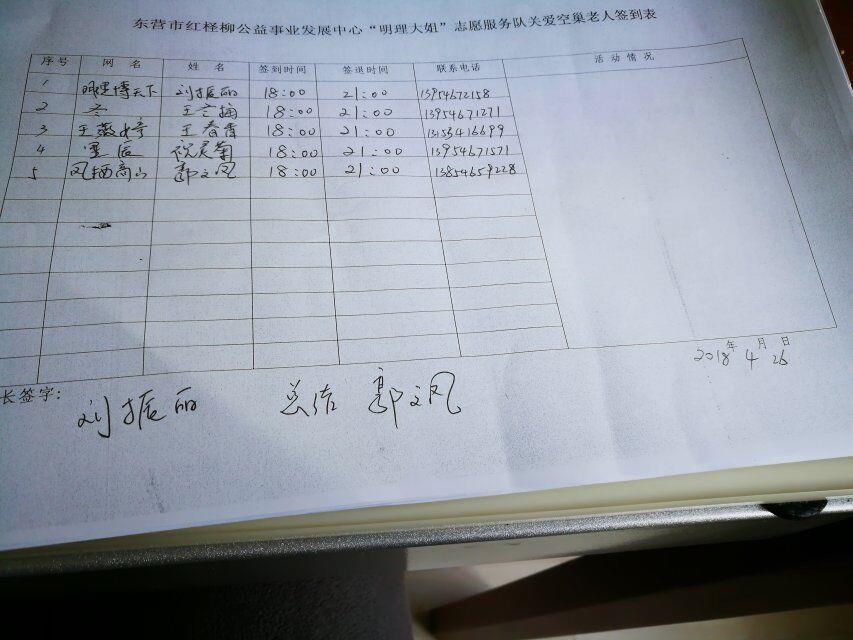 东营市红柽柳公益事业发展中心“明理大姐”志愿服务队关爱空巢老人签到表
序号 网名 姓名 签到时间 签退时间 联系电话 活动情况
1 博天下 刘振丽 18:00 21:00 13954672158
2 冬 王兰 18:00 21:00 13954671271
3 王 王春香 18:00 21:00 13153416699
4 星辰 祝灵菊 18:00 21:00 13954671571
5 凤栖高山 郭文凤 18:00 21:00 13854659228
年 月 日
2018 4 26
长签字: 刘振丽 总结 郭文凤